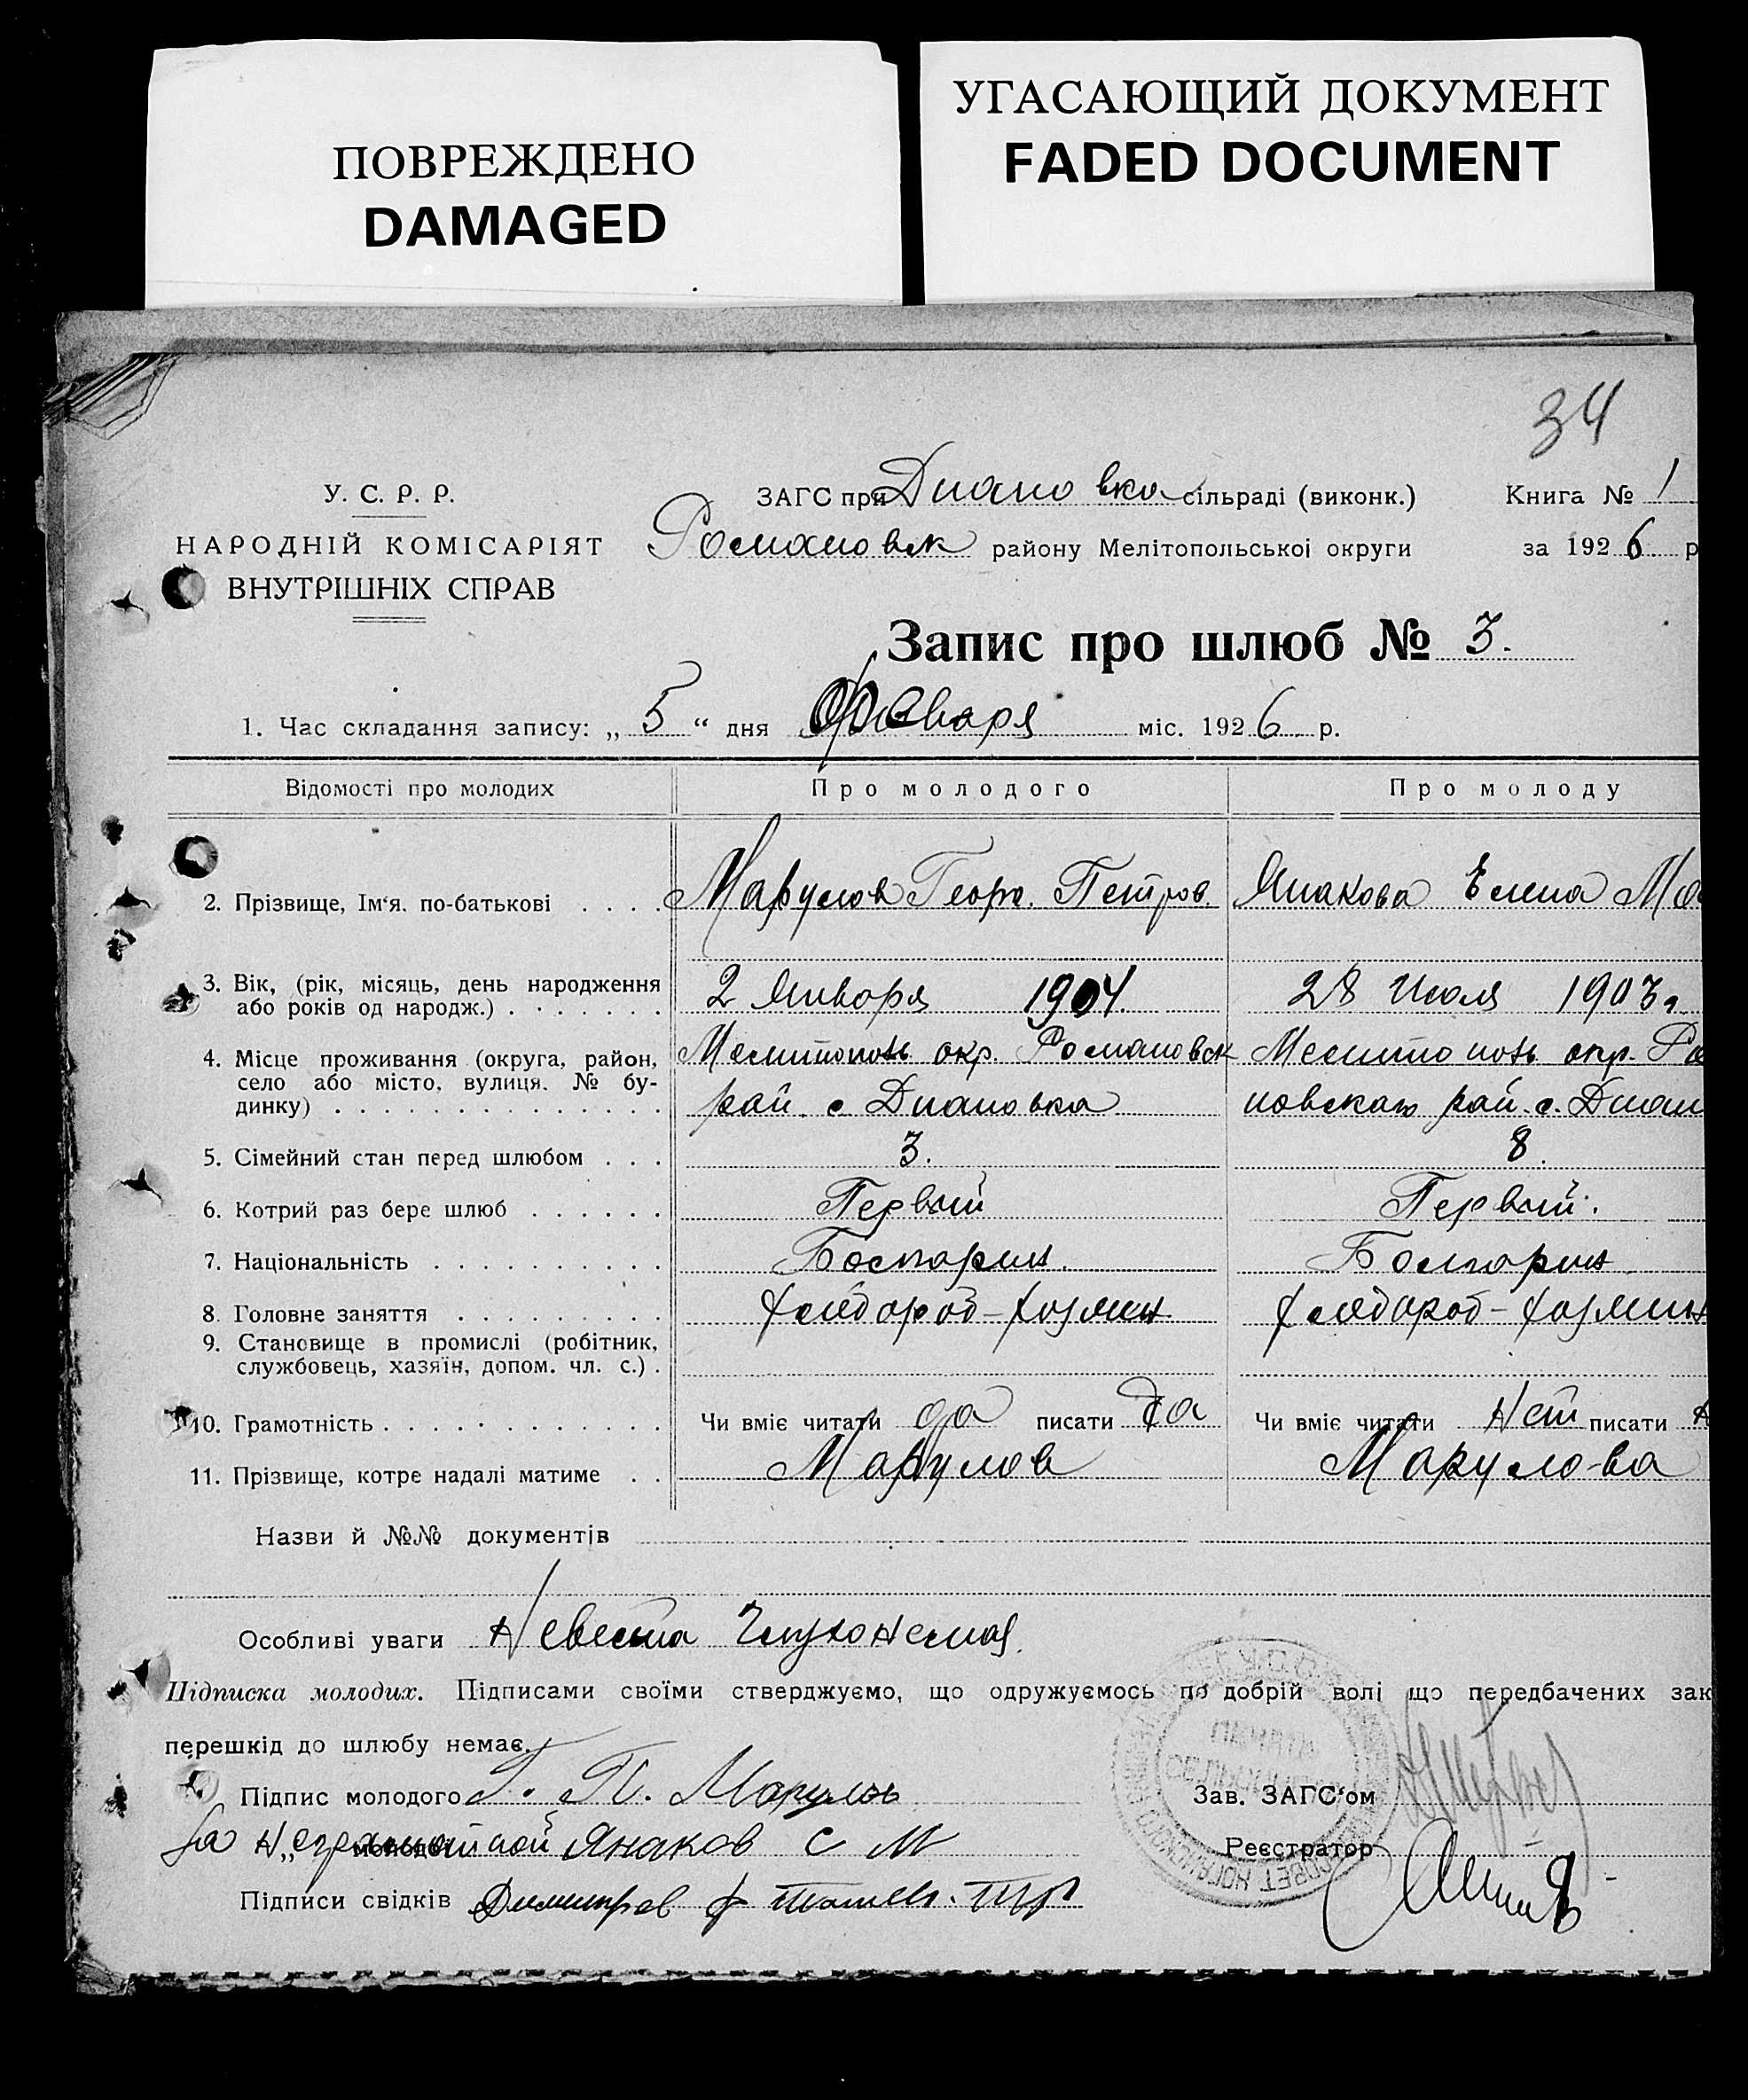 ПОВРЕЖДЕНО
DAMAGED
УГАСАЮЩИЙ ДОКУМЕНТ
FADED DOCUMENT
34
У. С. Р. Р.
НАРОДНІЙ КОМІСАРІЯТ
ВНУТРІШНІХ СПРАВ
ЗАГС при Диановка сільраді (виконк.) Книга № 1
Романовск району Мелітопольськоі округи за 1926 р
Запис про шлюб № 3.
1. Час складання запису: „ 5 “ дня Января міс. 1926 р.
Відомості про молодих Про молодого Про молоду
2. Прізвище, Ім‘я. по-батькові . . . . Марулов Георг. Петров. Янакова Елена
3. Вік, (рік, місяць, день народження 2 Января 1904. 28 Июля 1903 г.
або років од народж.) . . . . . . .
4. Місце проживання (округа, район, Мелитополь окр. Романовск Мелитополь окр. Ро
село або місто, вулиця. № бу- рай. с Диановка новскаго рай. с. Диан
динку) . . . . . . . . . . . . . .
5. Сімейний стан перед шлюбом . . . 3. 8.
6. Котрий раз бере шлюб . . . . . . Первый Первый.
7. Національність . . . . . . . . . . Болгарин. Болгарин
8. Головне заняття . . . . . . . . . хлебороб-хозяин хлебороб-хозяин
9. Становище в промислі (робітник,
службовець, хазяїн, допом. чл. с.) .
10. Грамотність . . . . . . . . . . . . Чи вміє читати да писати да Чи вміє читати Нет писати
11. Прізвище, котре надалі матиме . . Марулов Марулова
Назви й №№ документів
Особливі уваги Невеста глухонемая.
Підписка молодих. Підписами своїми стверджуємо, що одружуємось по добрій волі що передбачених зак
перешкід до шлюбу немає.
Підпис молодого Г. П. Марулов Зав. ЗАГС‘ом
За неграмотной Янаков С М Реєстратор
Підписи свідків Димитров